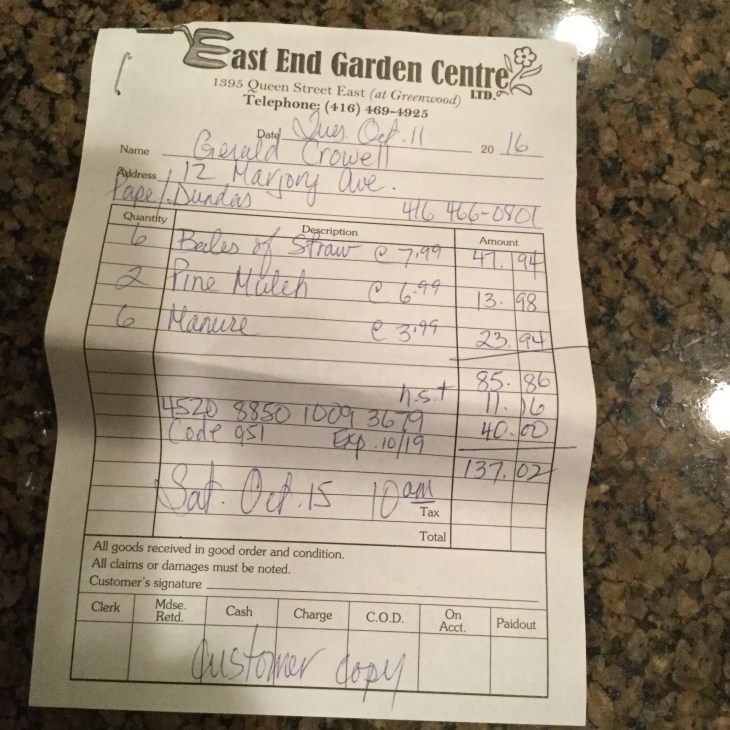 East End Garden Centre LTD.
1395 Queen Street East (at Greenwood)
Telephone: (416) 469-4925
Date Tues. Oct. 11 20 16
Name Gerald Crowell
Address 12 Marjory Ave.
Pape/Dundas 416 466-0801
Quantity Description Amount
6 Bales of Straw @ 7.99 47.94
2 Pine Mulch @ 6.99 13.98
6 Manure @ 3.99 23.94
85.86
h.s.t 11.16
4520 8850 1009 3679 40.00
Code 951 Exp. 10/19
137.02
Sat. Oct. 15 10 am
Tax
Total
All goods received in good order and condition.
All claims or damages must be noted.
Customer's signature
Clerk Mdse. Retd. Cash Charge C.O.D. On Acct. Paidout
Customer copy